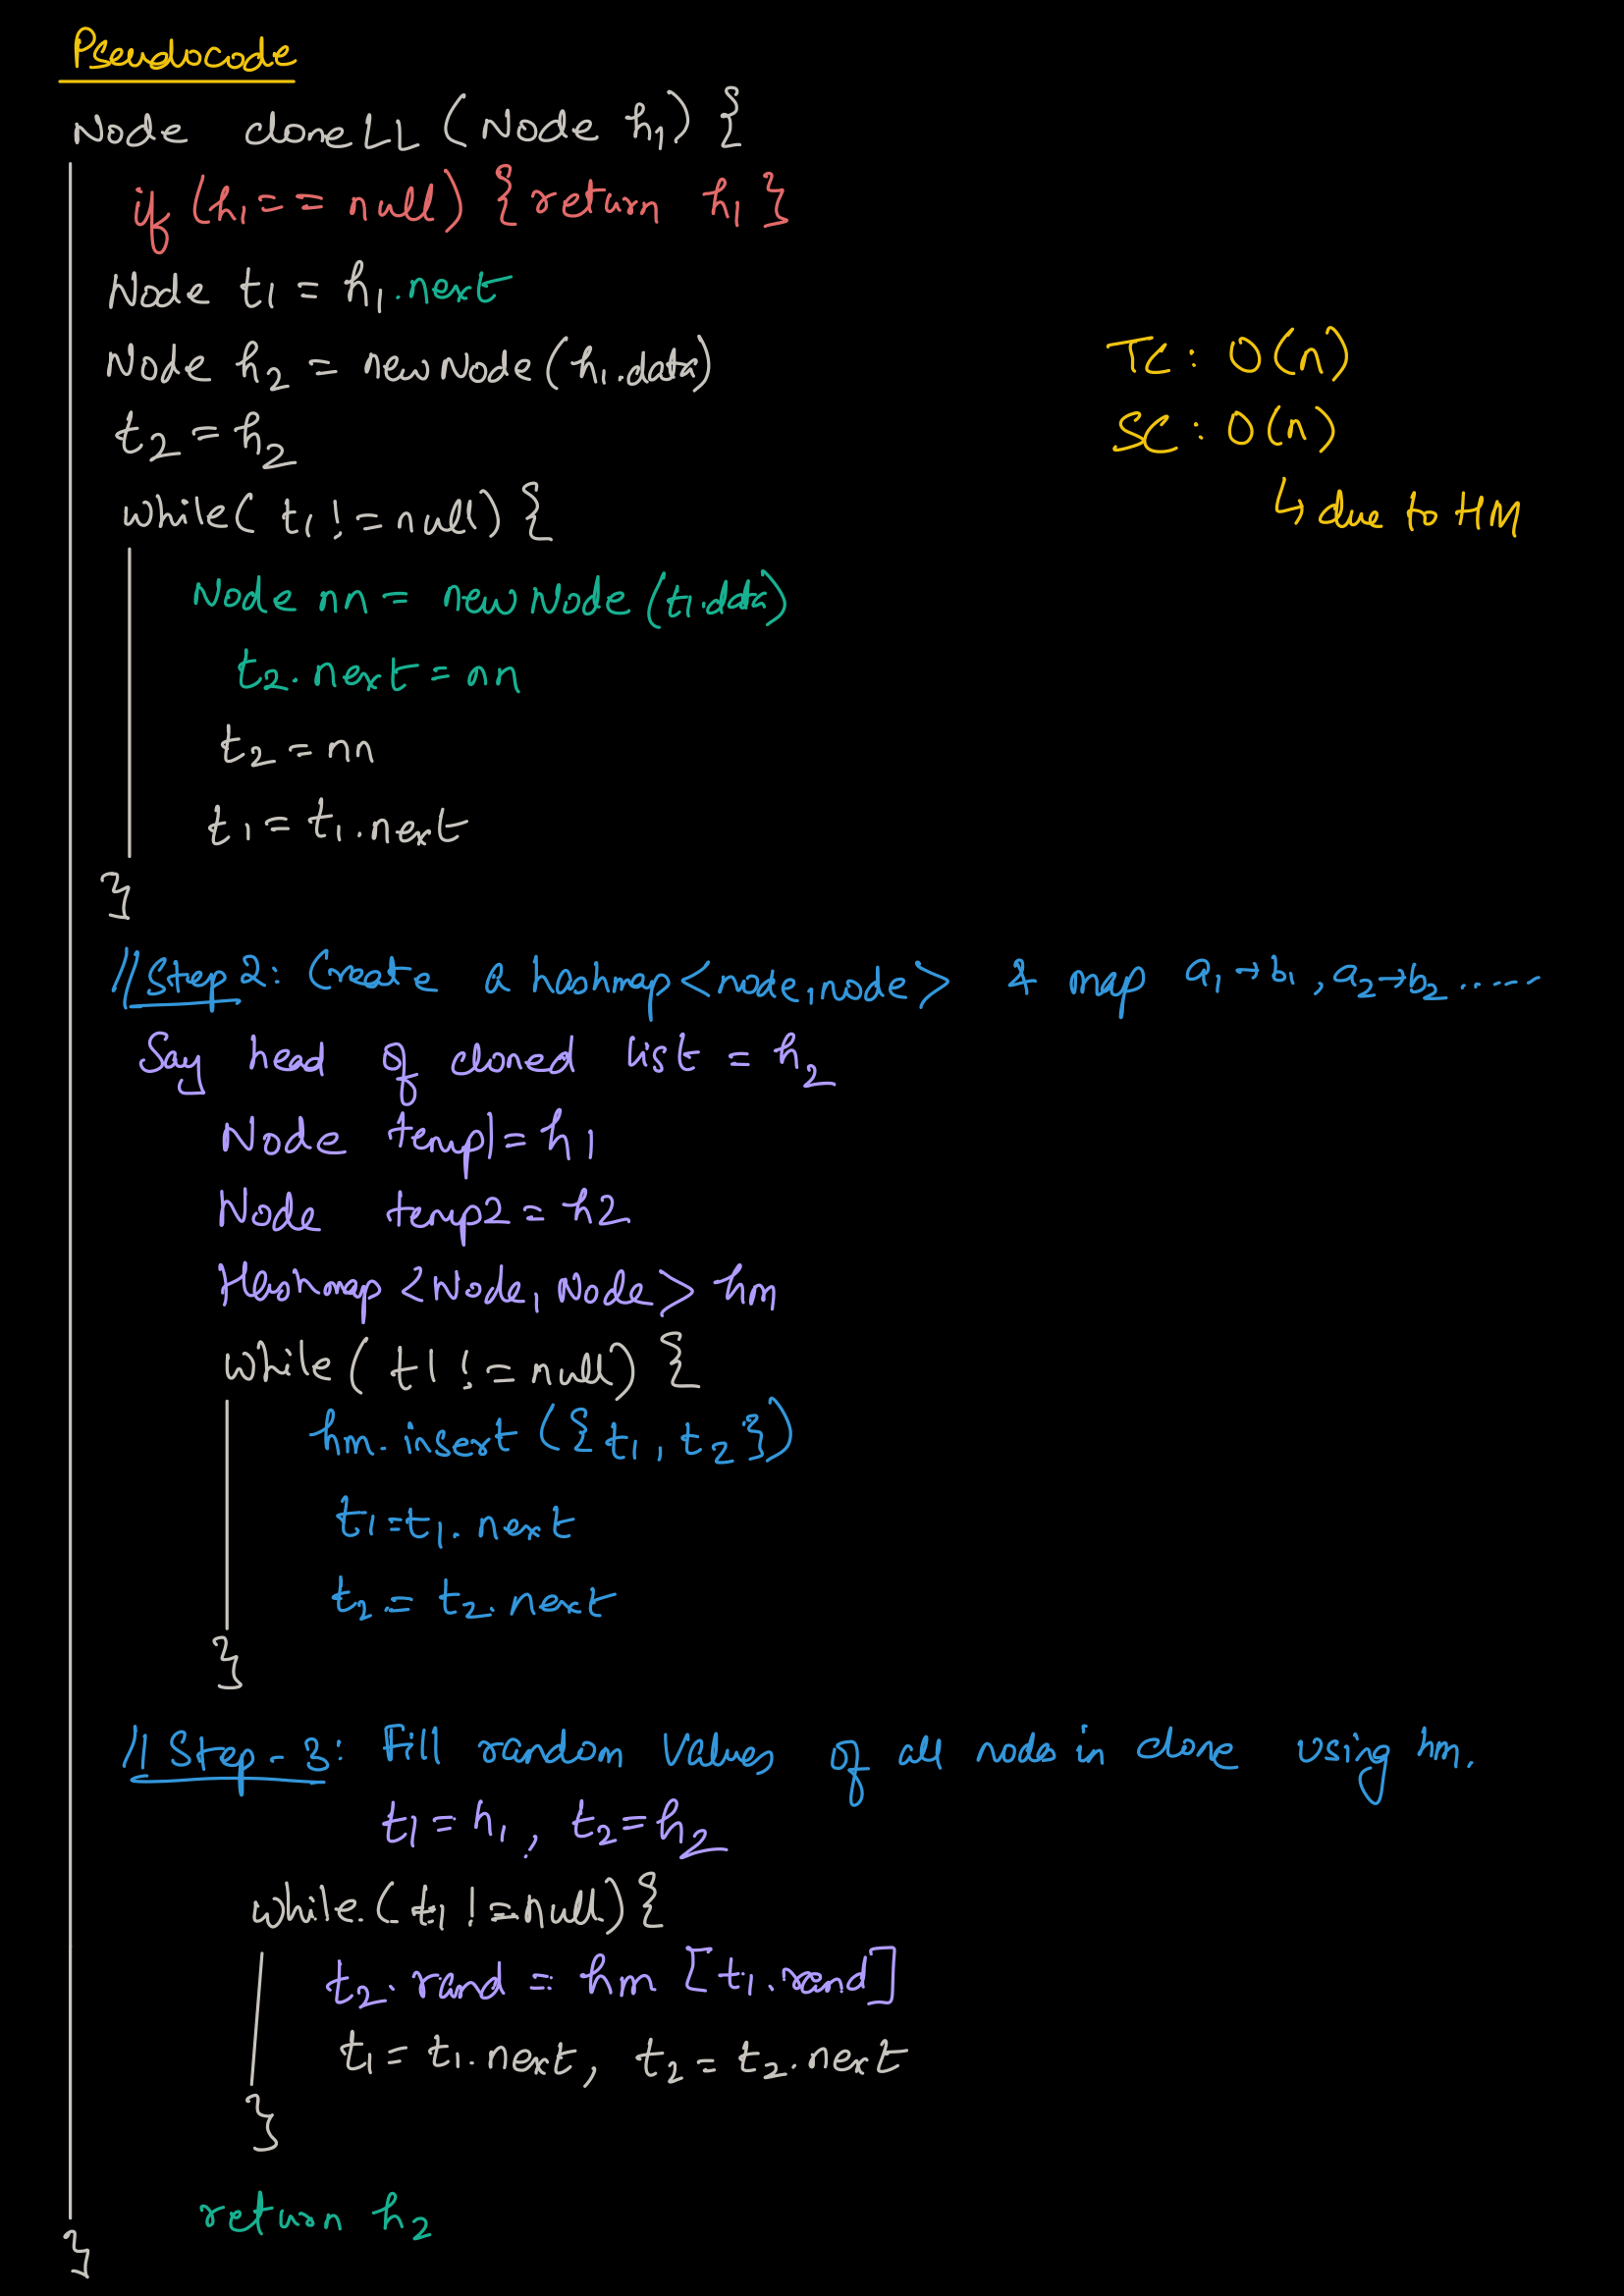 Pseudocode
Node cloneLL (Node h1) {
if (h1 == null) { return h1 }
Node t1 = h1.next
Node h2 = new Node (h1.data)
TC : O(n)
t2 = h2
SC : O(n)
while( t1 != null) {
↳ due to HM
Node nn = new Node (t1.data)
t2.next = nn
t2 = nn
t1 = t1.next
}
//Step 2: Create a hashmap <node, node> & map a1 → b1, a2 → b2 ......
Say head of cloned list = h2
Node temp1 = h1
Node temp2 = h2
Hashmap <Node, Node> hm
while ( t1 != null) {
hm.insert ({ t1, t2 })
t1 = t1.next
t2 = t2.next
}
// Step - 3: Fill random values of all nodes in clone using hm.
t1 = h1, t2 = h2
while ( t1 != null) {
t2.rand = hm [t1.rand]
t1 = t1.next, t2 = t2.next
}
return h2
}